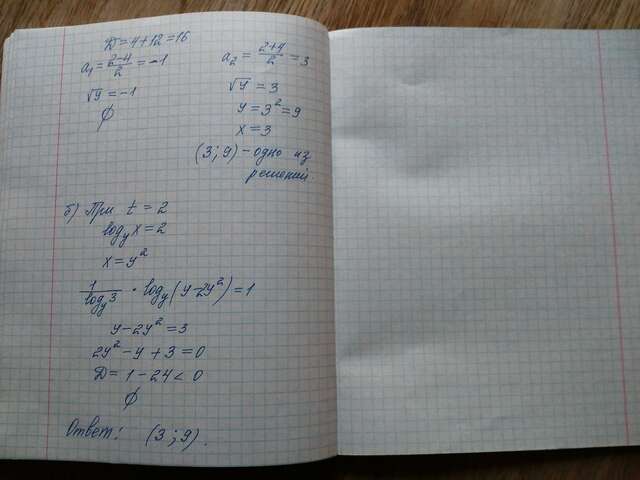 D=4+12=16
a₁=(2-4)/2=-1
√y=-1
∅
a₂=(2+4)/2=3
√y=3
y=3²=9
x=3
(3;9)-одно из
решений.
б) При t=2
log_y x=2
x=y²
1/(log_y 3)·log_y(y-2y²)=1
y-2y²=3
2y²-y+3=0
D=1-24<0
∅
Ответ: (3;9).